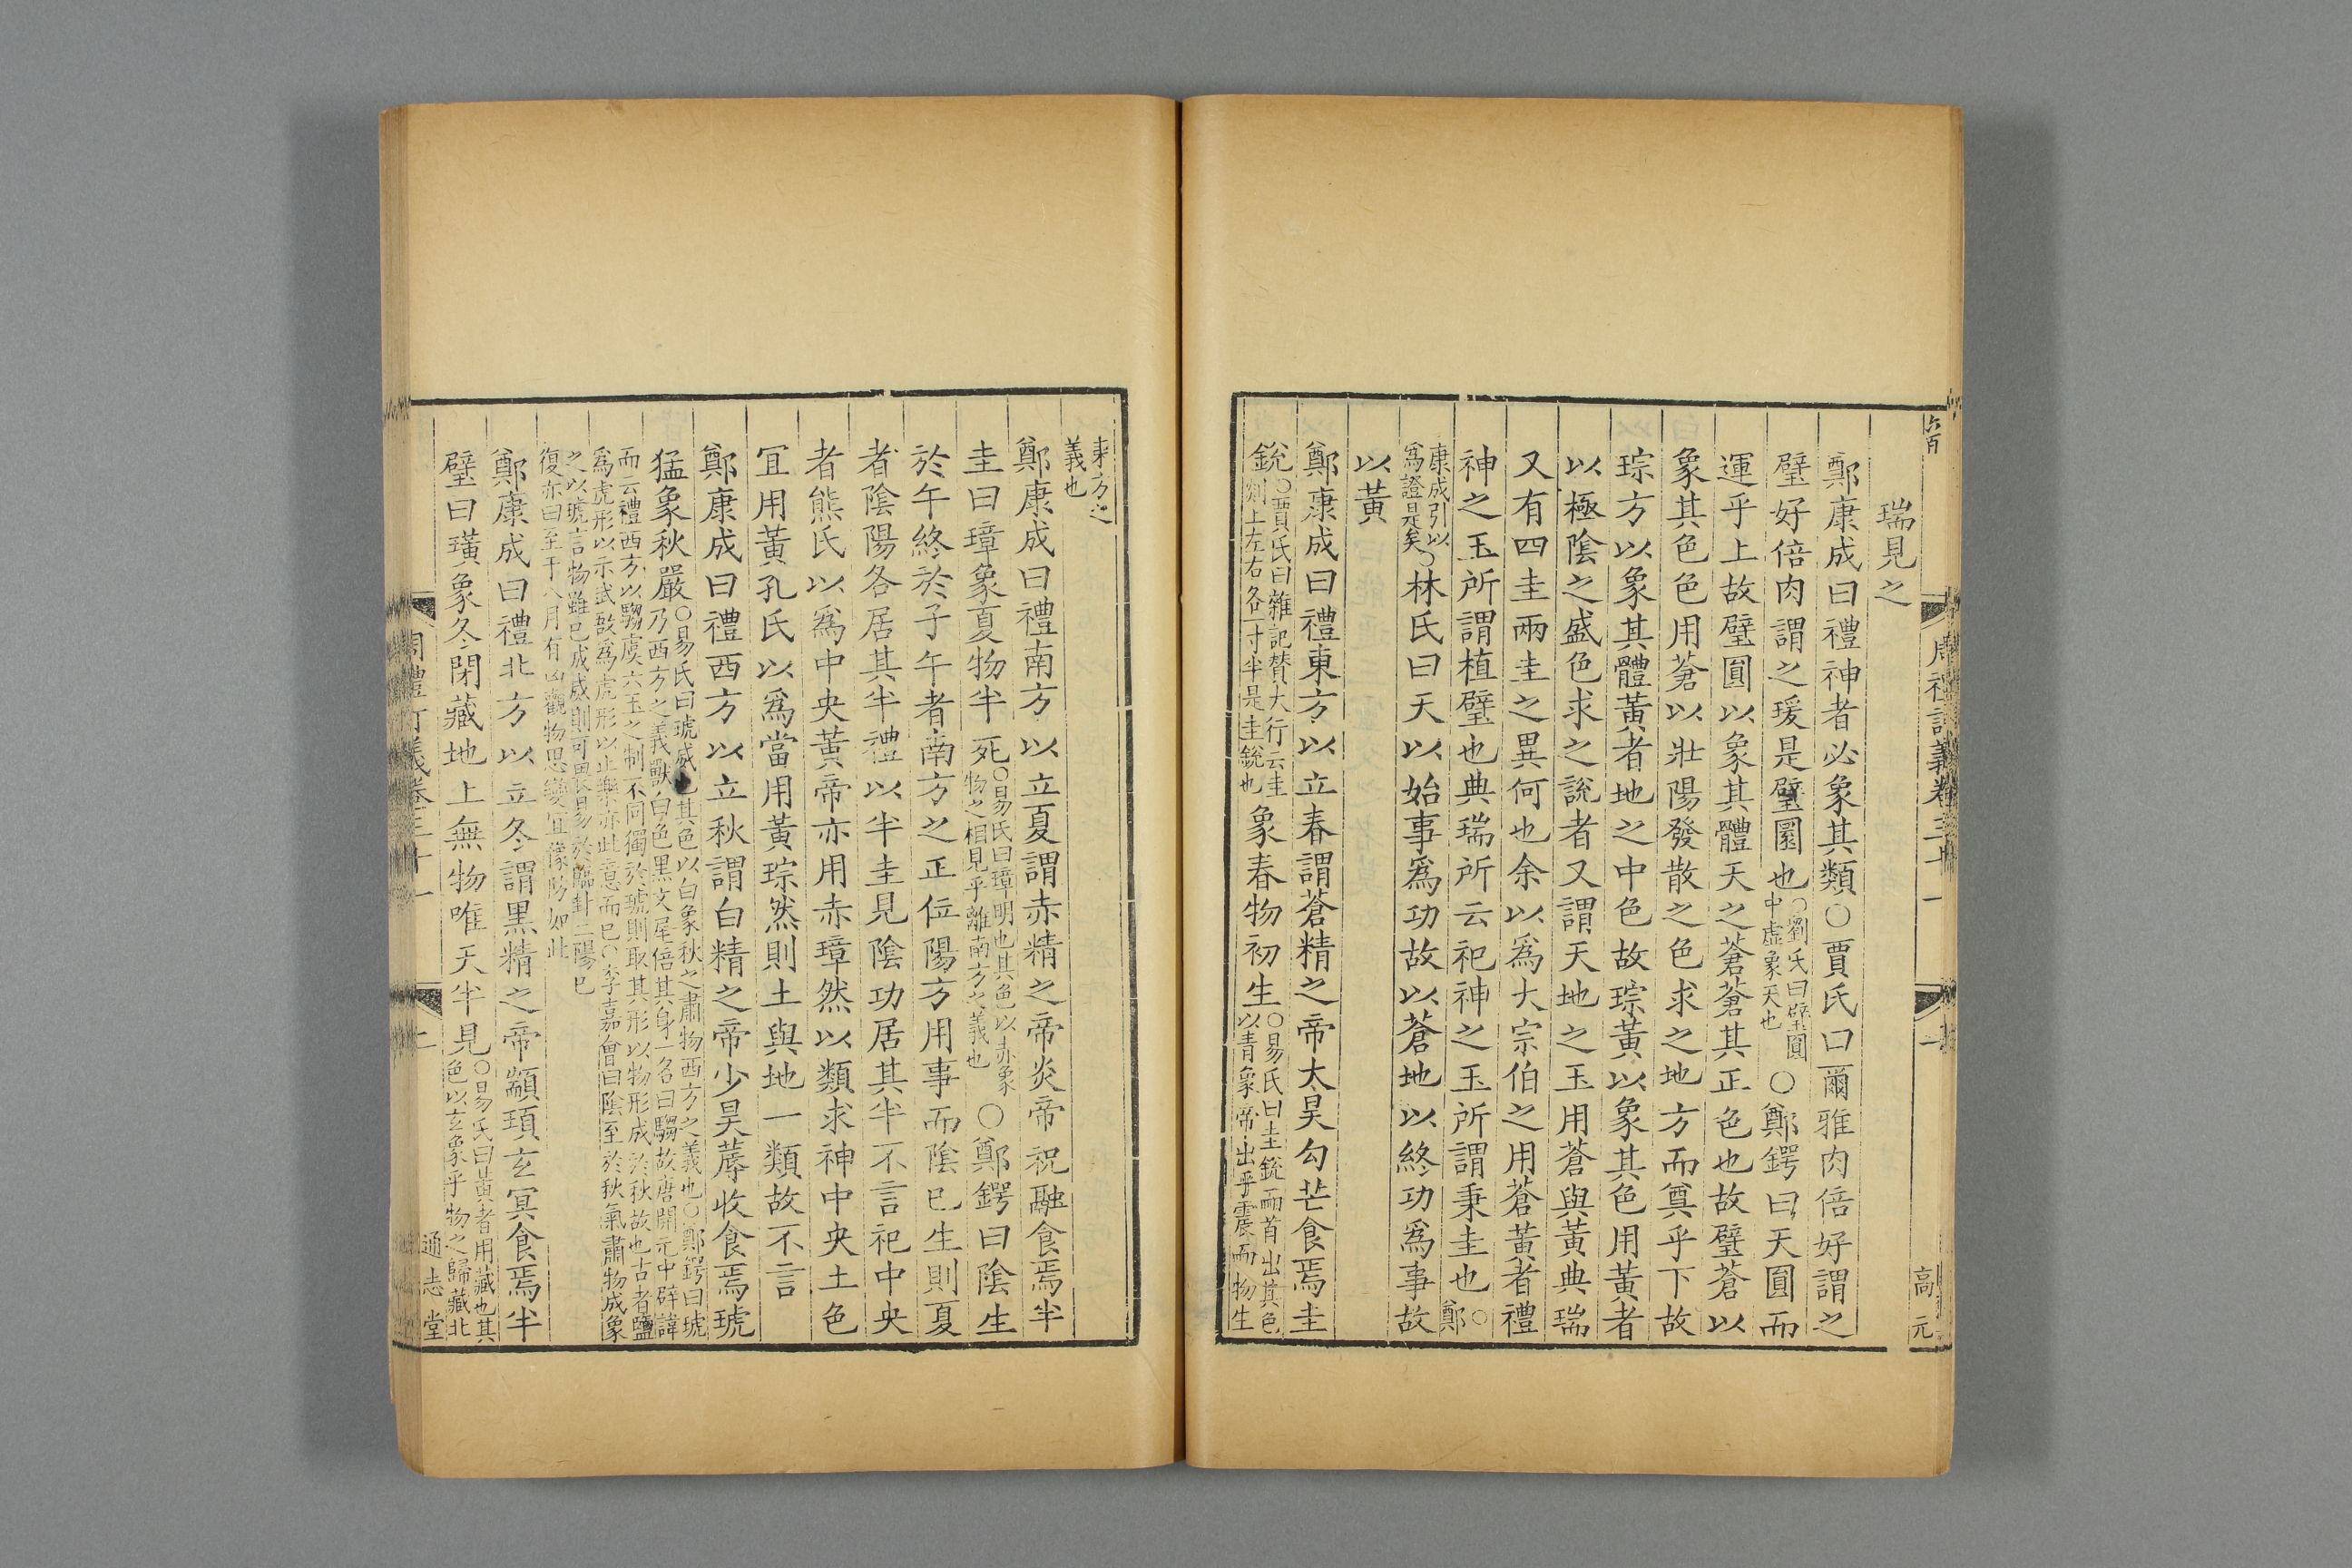 瑞見之
鄭康成曰禮神者必象其類○賈氏曰爾雅肉倍好謂之
璧好倍肉謂之瑗是璧圜也○劉氏曰璧圓中虛象天也○鄭鍔曰天圓而
運乎上故璧圓以象其體天之蒼蒼其正色也故璧蒼以
象其色色用蒼以壯陽發散之色求之地方而奠乎下故
琮方以象其體黃者地之中色故琮黃以象其色用黃者
以極陰之盛色求之說者又謂天地之玉用蒼與黃典瑞
又有四圭兩圭之異何也余以爲大宗伯之用蒼黃者禮
神之玉所謂植璧也典瑞所云祀神之玉所謂秉圭也○鄭
康成引以爲證是矣○林氏曰天以始事爲功故以蒼地以終功爲事故
以黃
鄭康成曰禮東方以立春謂蒼精之帝大昊勾芒食焉圭
銳○賈氏曰雜記贊大行云圭剡上左右各寸半是圭銳也象春物初生○易氏曰圭銳而首出其色以青象帝出乎震而物生
東方之義也
鄭康成曰禮南方以立夏謂赤精之帝炎帝祝融食焉半
圭曰璋象夏物半死○易氏曰璋明也其色以赤象物之相見乎離南方之義也○鄭鍔曰陰生
於午終於子午者南方之正位陽方用事而陰已生則夏
者陰陽各居其半禮以半圭見陰功居其半不言祀中央
者熊氏以爲中央黃帝亦用赤璋然以類求神中央土色
宜用黃孔氏以爲當用黃琮然則土與地一類故不言
鄭康成曰禮西方以立秋謂白精之帝少昊蓐收食焉琥
猛象秋嚴○易氏曰琥威也其色以白象秋之肅物西方之義也○鄭鍔曰琥乃西方之義獸白色黑文尾倍其身一名曰騶故唐開元中辟諱
而云禮西方以騶虞六玉之制不同獨於琥則取其形以物形成於秋故也古者鹽爲虎形以示武敔爲虎形以止樂亦此意而已○李嘉會曰陰至於秋氣肅物成象
之以琥言物雖已成威則可畏易於臨卦二陽已復亦曰至于八月有凶觀物思變宜豫防如此
鄭康成曰禮北方以立冬謂黑精之帝顓頊玄冥食焉半
璧曰璜象冬閉藏地上無物唯天半見○易氏曰黃者用藏也其色以玄象乎物之歸藏北
周禮訂義卷三十一
一
高元
二
通志堂